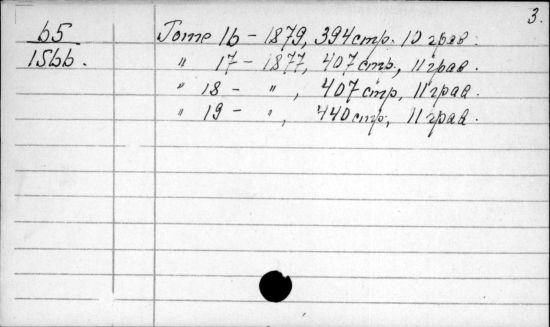 3.
65
1566.
Tome 16 - 1879, 394 стр. 10 грав.
" 17 - 1877, 407 стр., 11 грав.
" 18 - " , 407 стр, 11 грав.
" 19 - " , 440 стр, 11 грав.